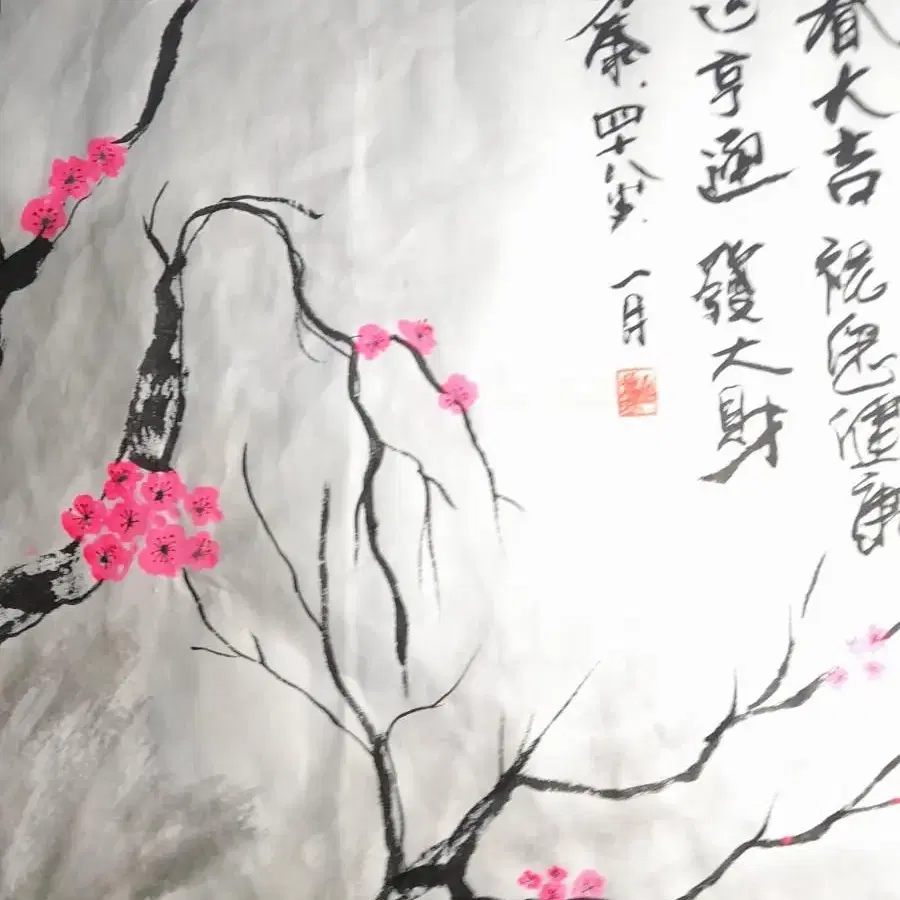 春大吉 祝您健康
运亨通 發大財
秦 四十八岁 一月